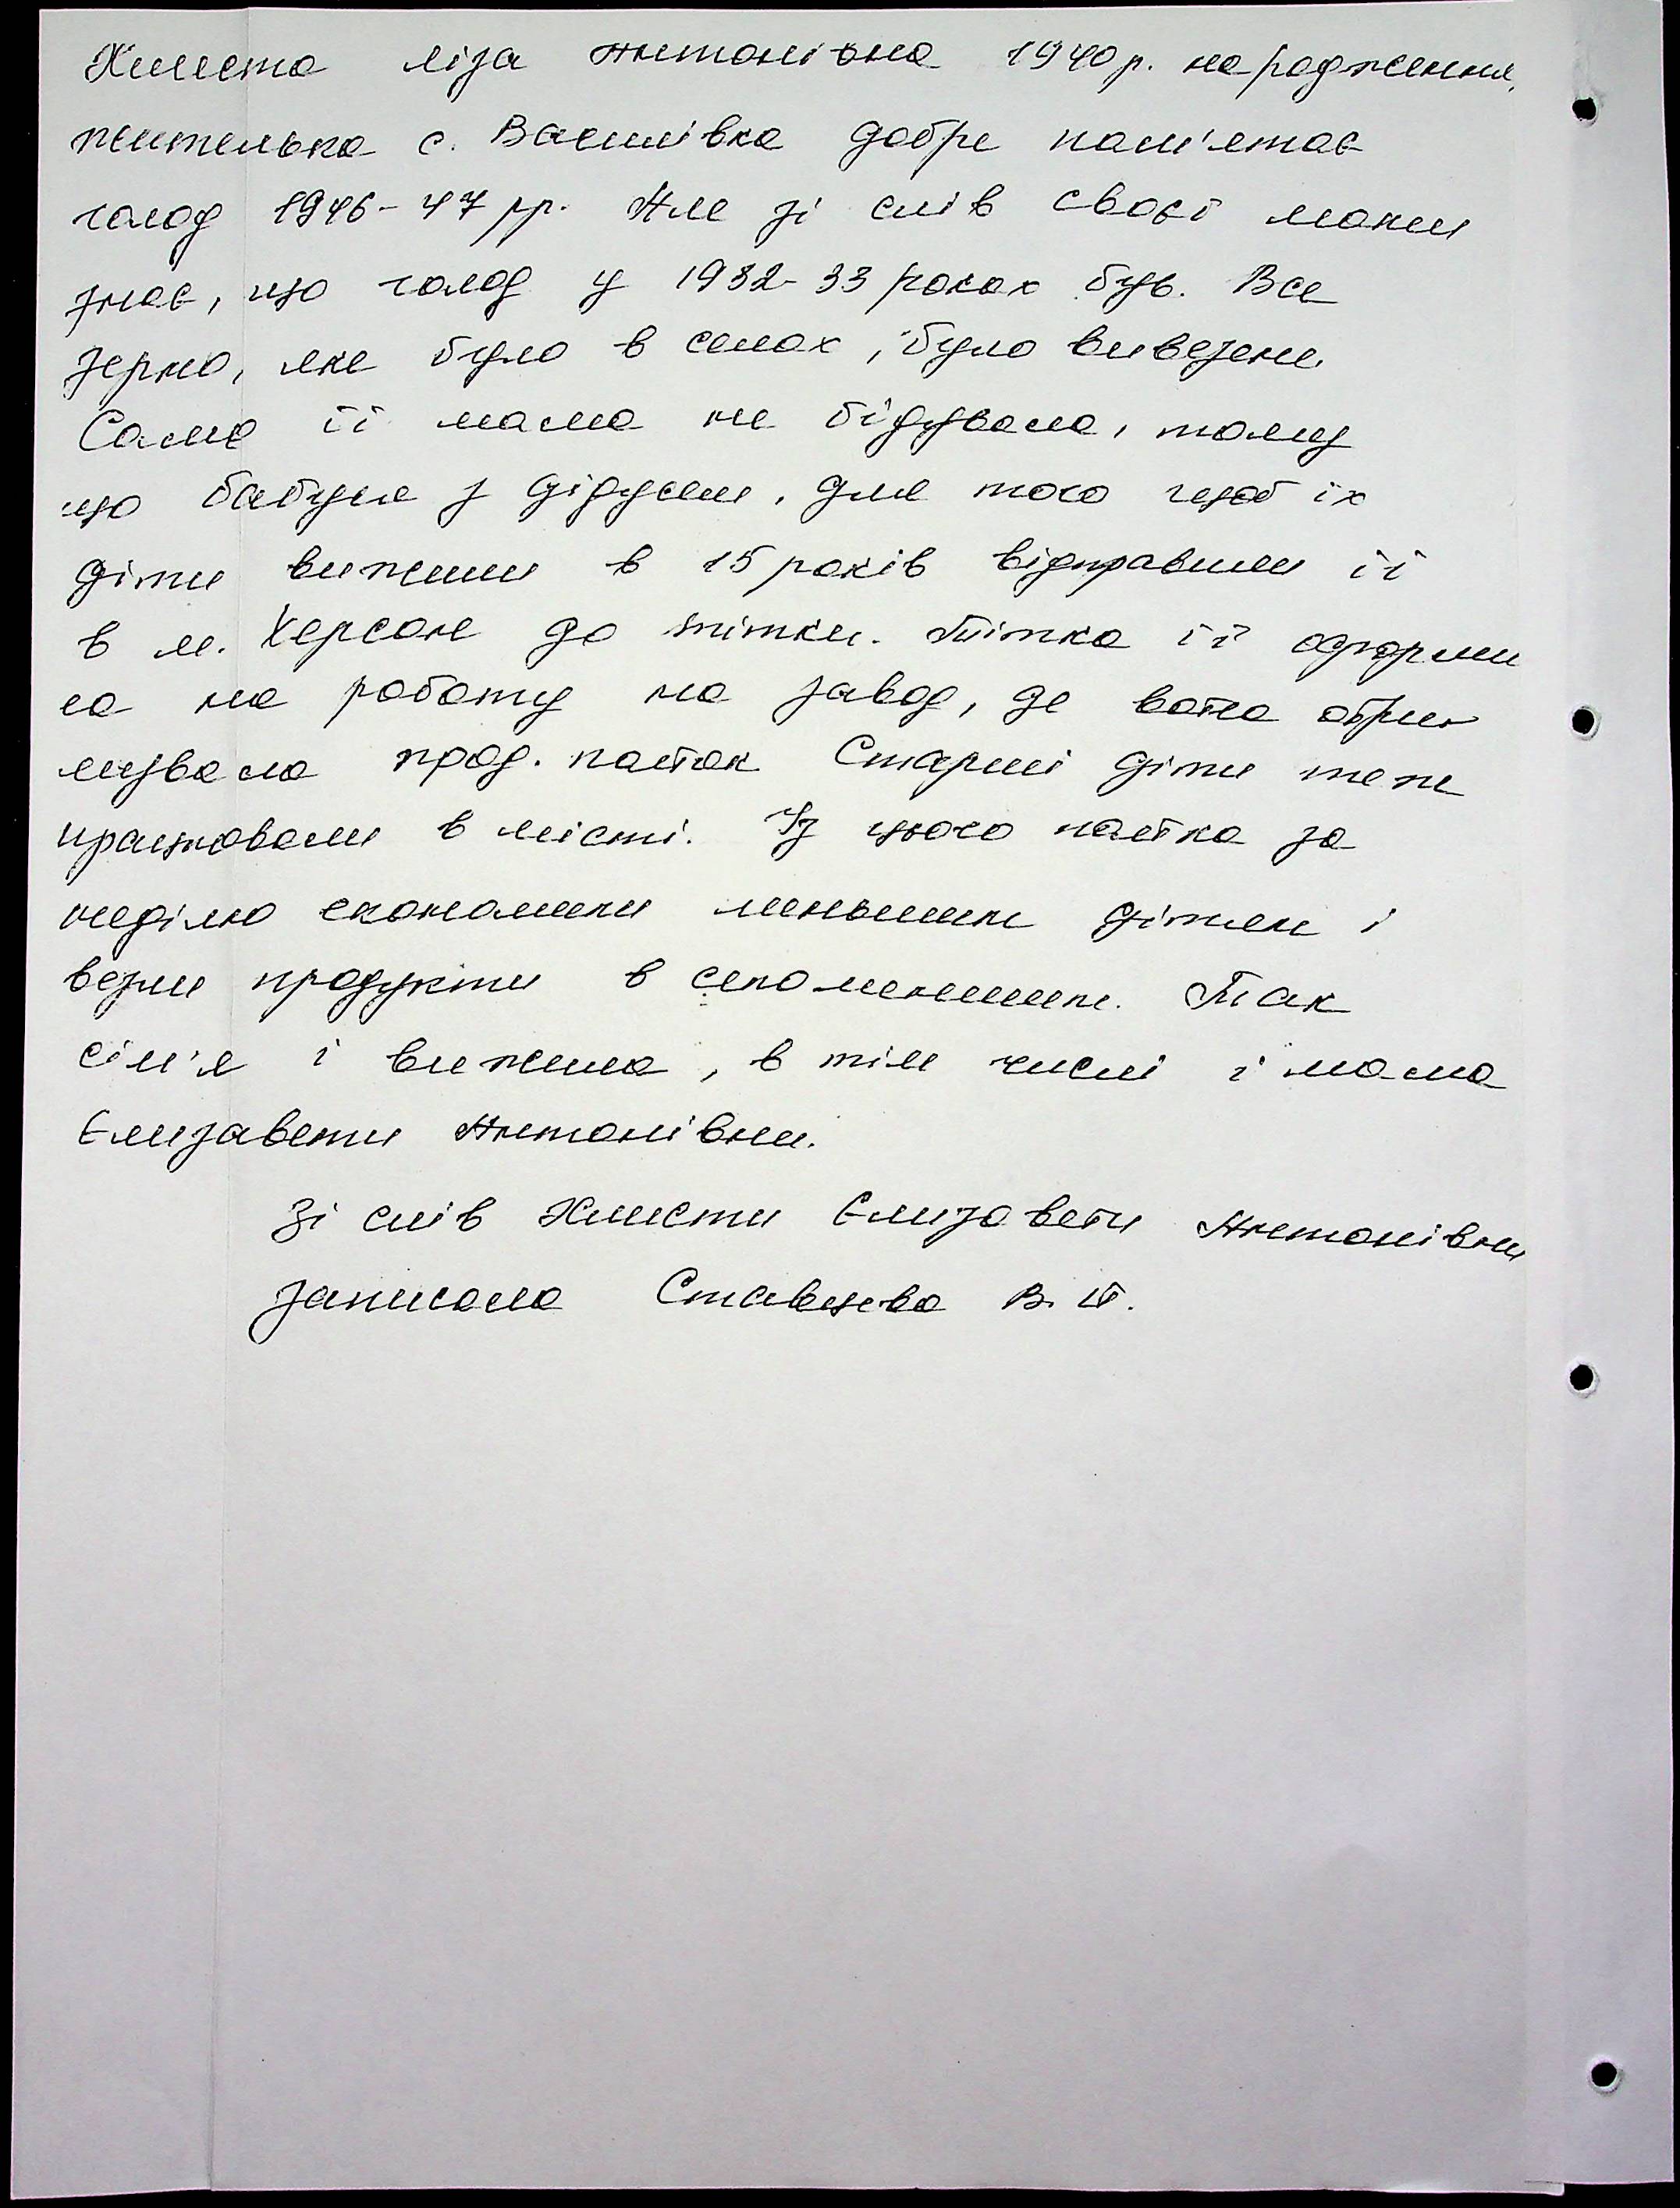 Хиleста Ліза Антонівна 1940 р. народження,
жителька с. Василівка добре пам'ятає
голод 1946-47 рр. Але зі слів своєї мами
знає, що голод у 1932-33 роках був. Все
зерно, яке було в селах, було вивезене.
Саме її мама не бідувала, тому
що бабуся з дідусем, для того щоб їх
діти вижили в 15 років відправили її
в м. Херсон до тітки. Тітка її оформи
ла на роботу на завод, де вона отри
мувала прод. пайок Старші діти теж
працювали в місті. Із цього пайка за
неділю економили меньшим дітям і
везли продукти в село меншим. Так
сім'я і вижила, в тім числі і мама
Єлизавети Антонівни.
Зі слів Хлисти Єлизавети Антонівни
записала Ставцева В. П.